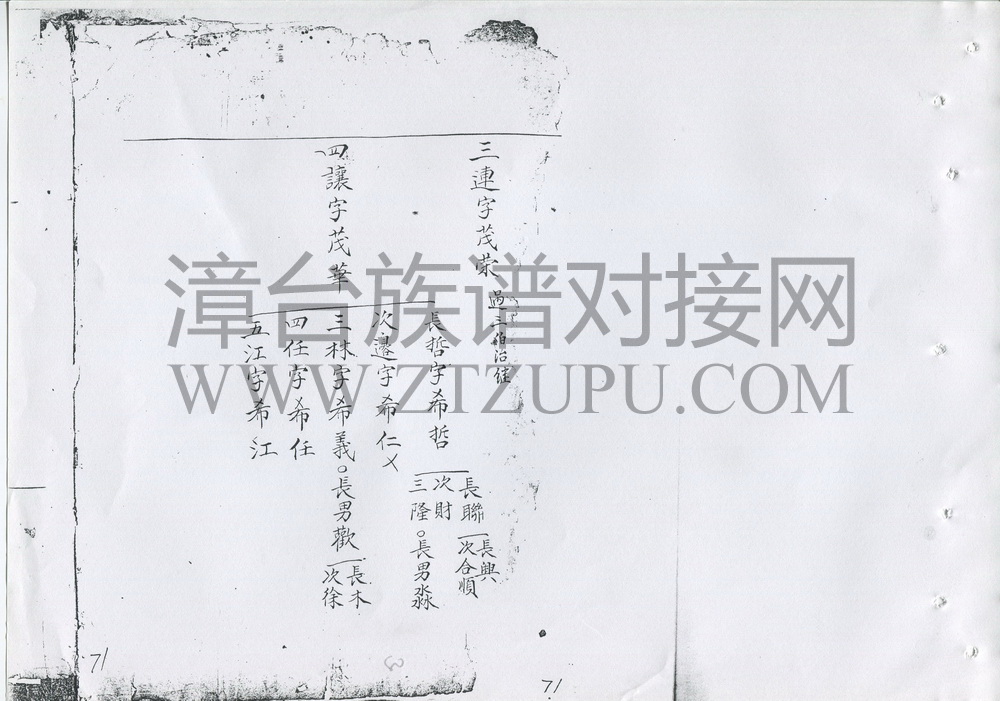 三連字茂荣 過三伯治佳
四讓字茂華
長哲字希哲
長聯
長興
次合順
次財
三隆。長男淼
次邊字希仁乂
三林字希義。長男歡
長木
次徐
四任字希任
五江字希江
漳台族谱对接网
WWW.ZTZUPU.COM
71
71